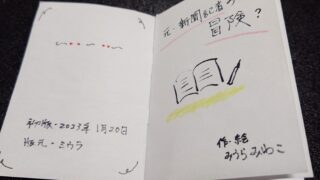 初版・2023年1月20日
版元・ミウラ
元・新聞記者の
冒険？
作・絵